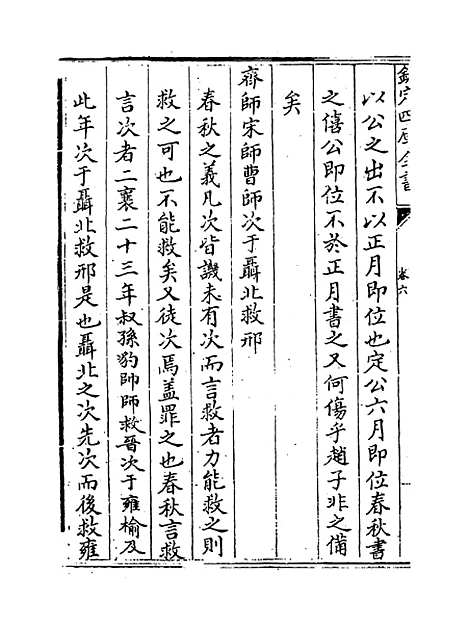 欽定四庫全書
卷六
以公之出不以正月即位也定公六月即位春秋書
之僖公即位不於正月書之又何傷乎趙子非之備
矣
齊師宋師曹師次于聶北救邢
春秋之義凡次皆譏未有次而言救者力能救之則
救之可也不能救矣又徒次焉盖罪之也春秋言救
言次者二襄二十三年叔孫豹帥師救晉次于雍榆及
此年次于聶北救邢是也聶北之次先次而後救雍